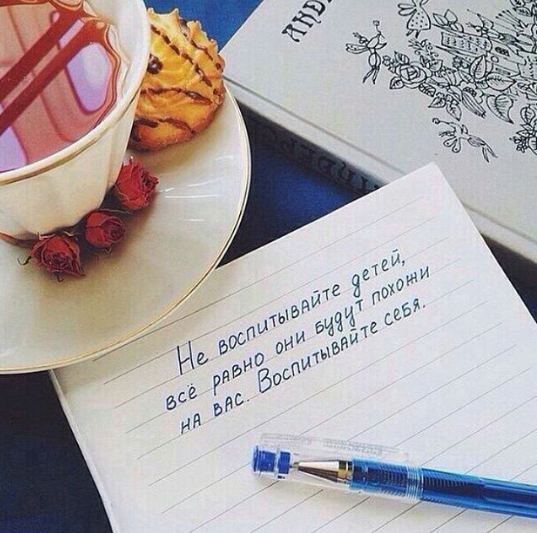 AND
Не воспитывайте детей,
всё равно они будут похожи
на вас. Воспитывайте себя.